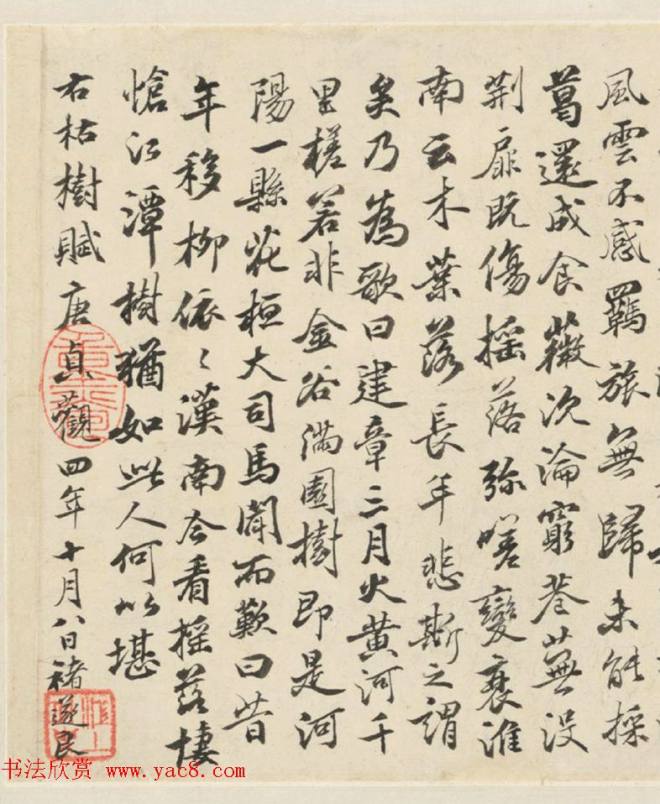 風雲不感羈旅無歸未能採
葛還成食薇沉淪窮巷蕪没
荆扉既傷摇落弥嗟變衰淮
南云木葉落長年悲斯之謂
矣乃為歌曰建章三月火黄河千
里槎若非金谷滿園樹即是河
陽一縣花桓大司馬聞而歎曰昔
年移柳依〻漢南今看摇落悽
愴江潭樹猶如此人何以堪
右枯樹賦唐貞觀四年十月八日褚遂良
书法欣赏 www.yac8.com